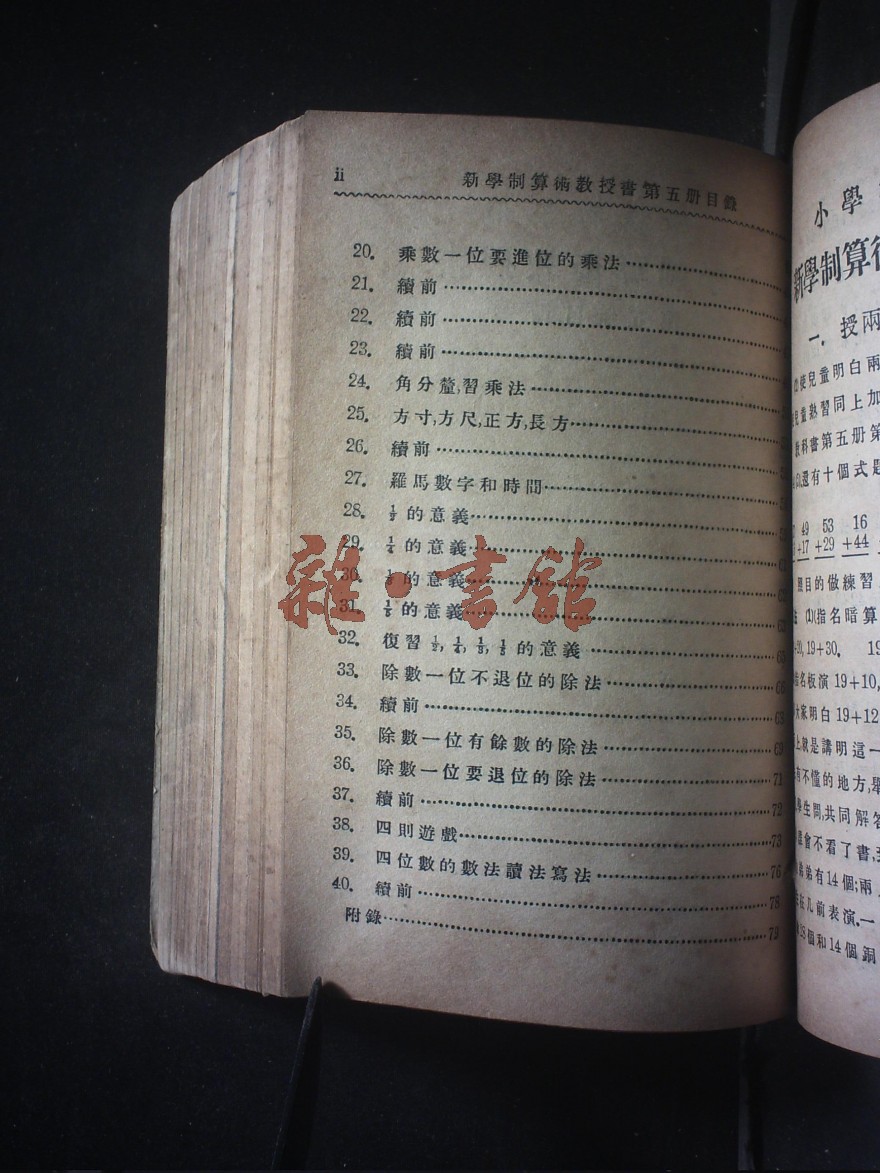 ii 新學制算術教授書第五册目錄
20. 乘數一位要進位的乘法
21. 續前
22. 續前
23. 續前
24. 角分釐,習乘法
25. 方寸,方尺,正方,長方
26. 續前
27. 羅馬數字和時間
28. ½的意義
29. ¼的意義
30. 的意義
31. 的意義
32. 復習 ½, ¼, 的意義
33. 除數一位不退位的除法
34. 續前 68
35. 除數一位有餘數的除法 69
36. 除數一位要退位的除法 71
37. 續前 72
38. 四則遊戲 73
39. 四位數的數法讀法寫法 76
40. 續前 78
附錄 79
雜·書館
小學
新學制算術
一. 授兩
使兒童明白兩
兒童熟習同上加
教科書第五册第
還有十個式題
49 53 16
+17 +29 +44
照目的做練習
(1)(指名暗算
19+30. 19
指名板演 19+10,
大家明白 19+12
上,就是講明這一
有不懂的地方,舉
學生問,共同解答
會不看了書,
弟弟有14個;兩
在几前表演.一
18個和14個銅